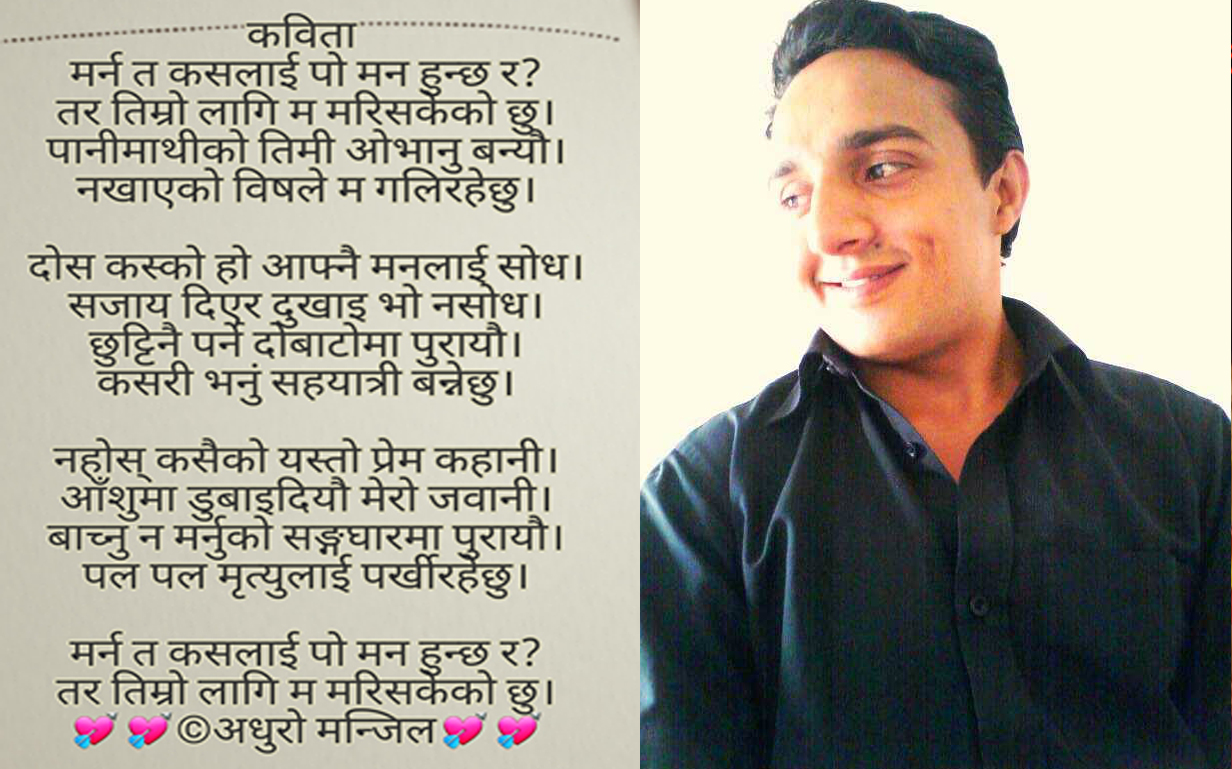 कविता
मर्न त कसलाई पो मन हुन्छ र?
तर तिम्रो लागि म मरिसकेको छु।
पानीमाथीको तिमी ओभानु बन्यौ।
नखाएको विषले म गलिरहेछु।
दोस कस्को हो आफ्नै मनलाई सोध।
सजाय दिएर दुखाइ भो नसोध।
छुट्टिनै पर्ने दोबाटोमा पुरायौ।
कसरी भनुं सहयात्री बन्नेछु।
नहोस् कसैको यस्तो प्रेम कहानी।
आँशुमा डुबाइदियौ मेरो जवानी।
बाच्नु न मर्नुको सङ्गघारमा पुरायौ।
पल पल मृत्युलाई पर्खीरहेछु।
मर्न त कसलाई पो मन हुन्छ र?
तर तिम्रो लागि म मरिसकेको छु।
💘 💘 ©अधुरो मन्जिल💘 💘